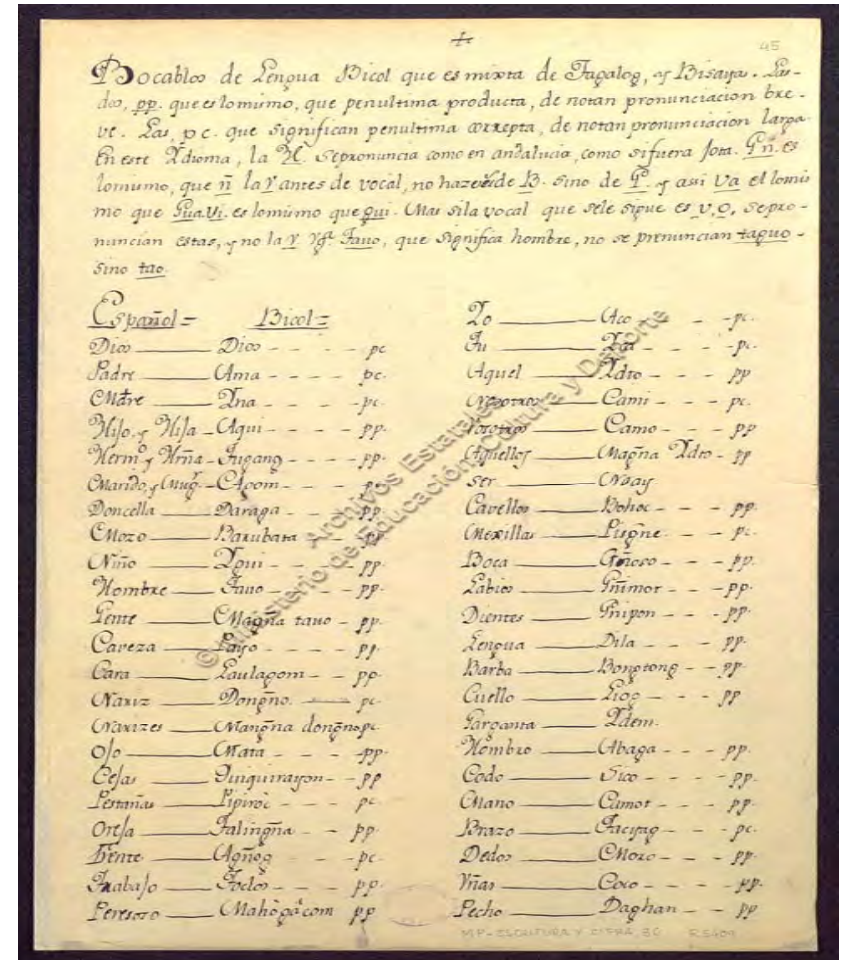 45
Bocablos de Lengua Bicol que es mixta de Tagalog, y Bisaya. Las
dos, pp. que es lo mismo, que penultima producta, de notan pronunciacion bre-
ve. Las, pc. que significan penultima correpta, de notan pronunciacion larga
En este Ydioma, la H. se pronuncia como en andalucia, como si fuera jota. Gñ. es
lo mismo, que ñ la V antes de vocal, no haze de B. sino de G. y assi Va el lo mis
mo que Gua. Vi. es lo mismo que gui. Mas si la vocal que se le sigue es v, o, se pro-
nuncian estas, y no la V. Vg.ª Tauo, que significa hombre, no se pronuncian taguo -
sino tao.
Español = Bicol =
Dios Dios pc
Padre Ama pc.
Mdre Yna pc.
Hijo, y Hija Aqui pp.
Hermº y Hrña Tugang pp.
Marido, y Mug. Agom
Doncella Daraga pp
Mozo Barubata
Niño Ygui pp.
Hombre Tauo pp.
Gente Magña tauo pp.
Caveza Payo pp.
Cara Laulagom pp.
Nariz Dongño. pc.
Narizes Mangña dongño pc.
Ojo Mata pp.
Cejas Quiquirayon pp
Pestañas Pipiroc pc
Oreja Talingña pp.
Frente Agñog pc.
Trabajo Toclos pp.
Peresozo Mahogacom pp
Yo Aco pc.
Tu pc.
Aquel Ydto pp
Nosotros Cami pc.
Vosotros Camo pp
Aquellos Magña Ydto pp
Ser May
Cavellos Bohoc pp.
Mexillas Pisgne pc.
Boca Gñoso pp.
Labios Gñimot pp.
Dientes Gñipon pp.
Lengua Dila pp.
Barba Bongtong pp.
Cuello Liog pp
Garganta Ydem.
Hombro Abaga pp.
Codo Sico pp.
Mano Camot pp.
Brazo Tacyag pc.
Dedos Moro pp.
Vñas Coco pp.
Pecho Daghan pp
© Ministerio de Educación, Cultura y Deporte
Archivos Estatales
MP-ESCRITURA Y CIFRA, 30 R.5409